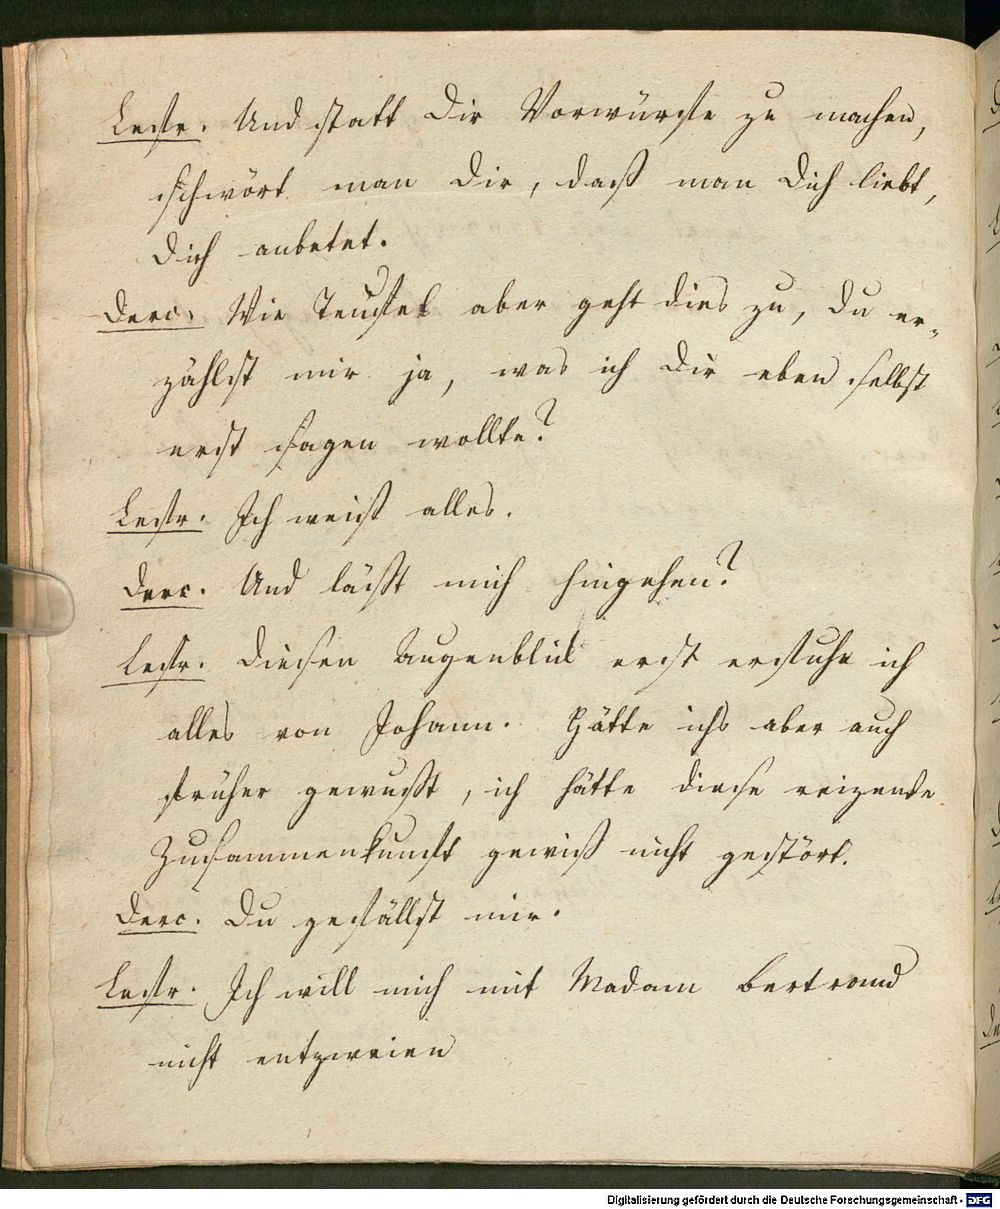 Lestr. Und statt Dir Vorwürfe zu machen,
schwört man Dir, daß man Dich liebt,
Dich anbetet.
Derc. Wie Teufel aber geht dies zu, Du er-
zählst mir ja, was ich Dir eben selbst
erst sagen wollte?
Lestr. Ich weiß alles.
Derc. Und läßt mich hingehen?
Lestr. Diesen Augenblick erst erfuhr ich
alles von Johann. Hätte ichs aber auch
früher gewußt, ich hätte diese reizende
Zusammenkunft gewiß nicht gestört.
Derc. Du gefällst mir.
Lestr. Ich will mich mit Madam Bertrand
nicht entzweien
Digitalisierung gefördert durch die Deutsche Forschungsgemeinschaft - DFG